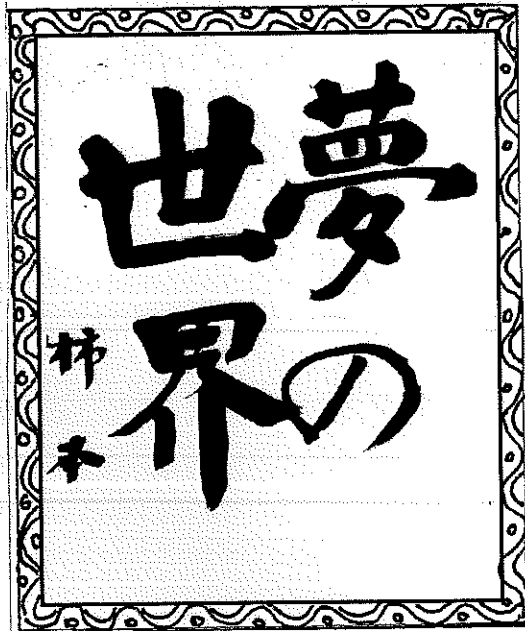 夢の
世界
柿本